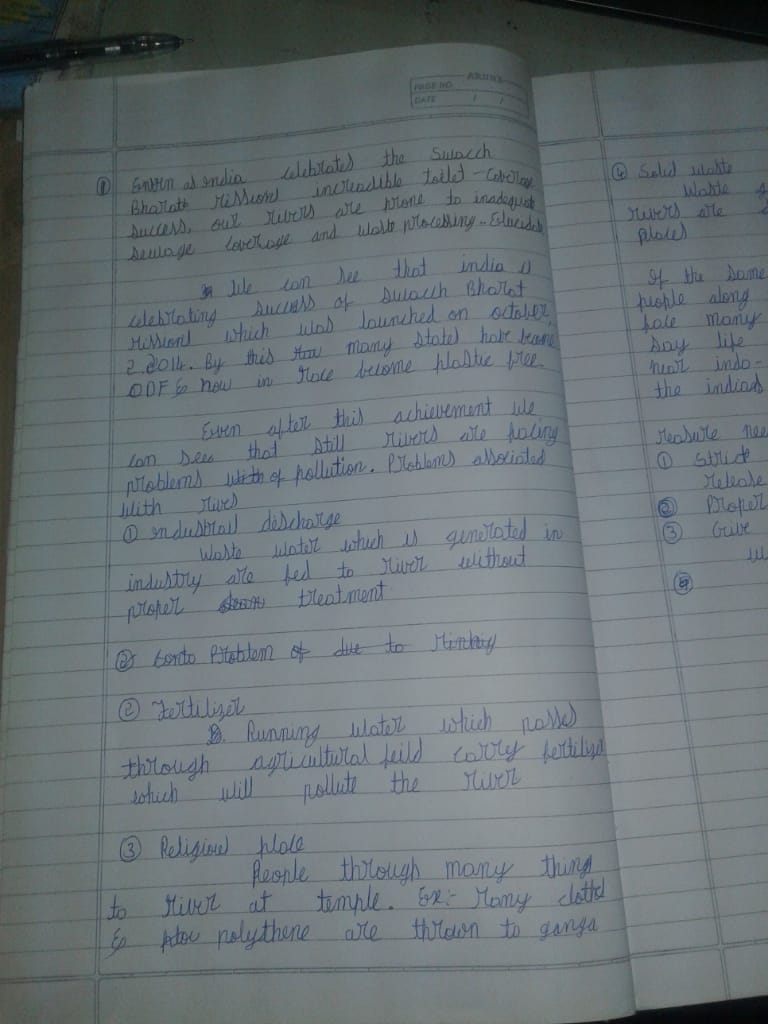 ARUNS
PAGE NO.
DATE / /
① Enven as India celebrates the Swacch
Bharath Mission increadible toilet - Coverage
success, our rivers are prone to inadequate
sewage coverage and waste processing.. Elucidate
We can see that india is
celebrating success of Swacch Bharat
Mission which was launched on october,
2, 2014. By this many states have became
ODF & now in race become plastic free.
Even after this achievement we
can see that still rivers are facing
problems with of pollution. Problems associated
with rives
① industrail discharge
Waste water which is generated in
industry are fed to river without
proper treatment
② Conto Problem of due to Mining
② Fertilizer
Running water which passes
through agricultural feild carry fertilizer
which will pollute the river
③ Religious place
People through many thing
to river at temple. Ex:- Many cloths
& polythene are thrown to ganga
④ Solid waste
Waste
rivers are
places
If the same
people along
face many
day life
near indo-
the indias
Measure nee
① Strict
release
② Proper
③ Give
④